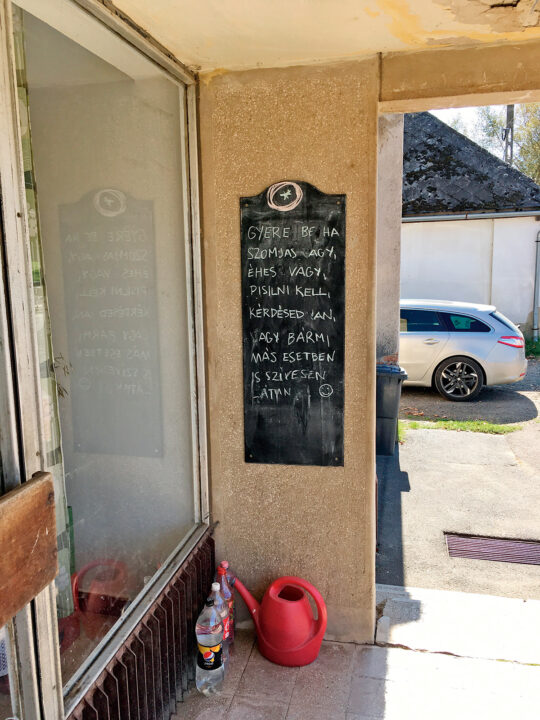 GYERE BE HA
SZOMJAS VAGY,
ÉHES VAGY,
PISILNI KELL,
KÉRDÉSED VAN,
VAGY BÁRMI
MÁS ESETBEN
IS SZÍVESEN